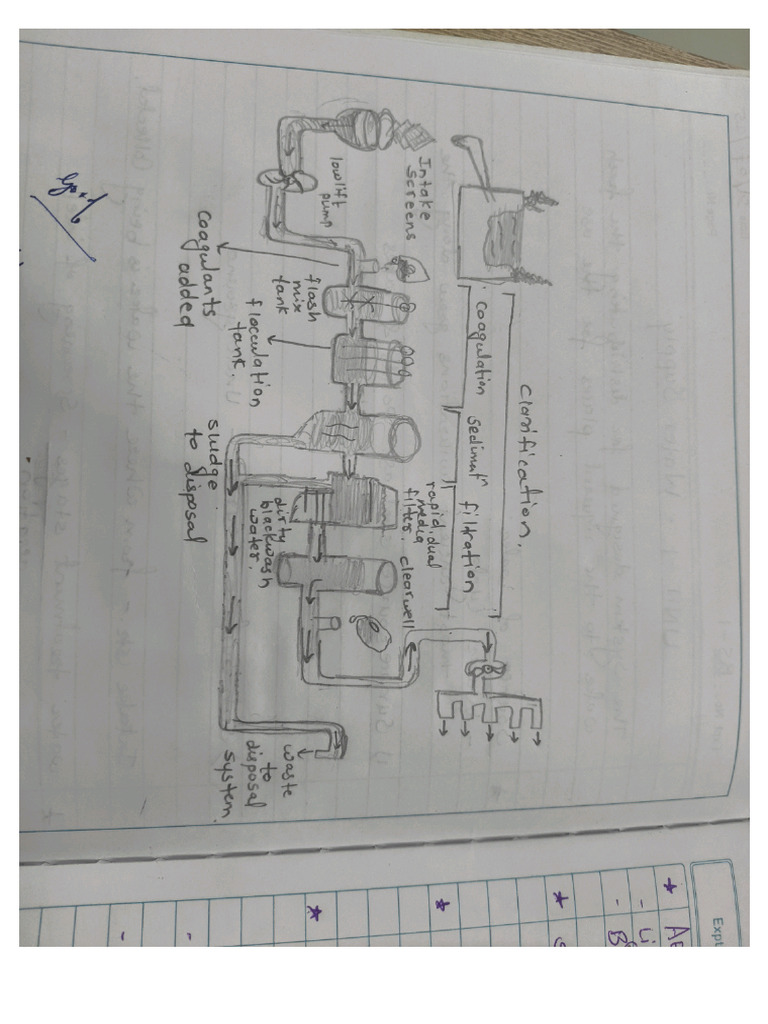 clarification.
coagulation
sedimatⁿ
filtration
Intake
screens
lowlift
pump
flash
mix
tank
coagulants
added
flocculation
tank.
rapid dual
media
filter.
clearwell
sludge
to disposal
dirty
blackwash
water.
waste
to
disposal
system.
Expt